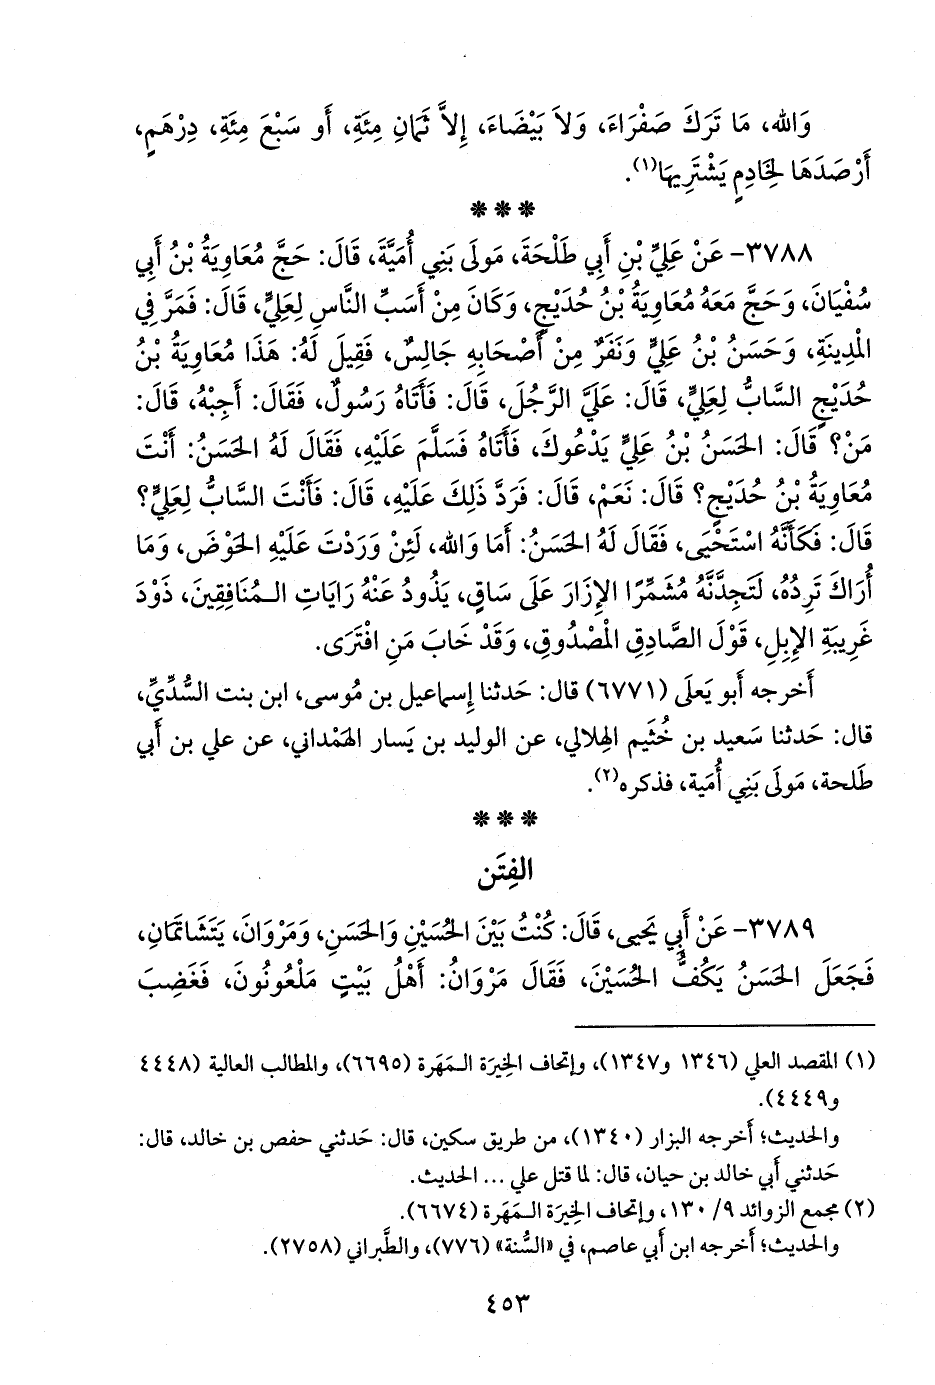 وَالله، مَا تَرَكَ صَفْرَاءَ، وَلاَ بَيْضَاءَ، إِلاَّ ثَمَانِ مِئَةِ، أَو سَبْعَ مِئَةِ، دِرْهَمٍ،
أَرْصَدَهَا لِخَادِمٍ يَشْتَرِيهَا(١).
* * *
٣٧٨٨- عَنْ عَلِيِّ بْنِ أَبِي طَلْحَةَ، مَولَى بَنِي أُمَيَّةَ، قَالَ: حَجَّ مُعَاوِيَةُ بْنُ أَبِي
سُفْيَانَ، وَحَجَّ مَعَهُ مُعَاوِيَةُ بْنُ حُدَيْجٍ، وَكَانَ مِنْ أَسَبِّ النَّاسِ لِعَلِيٍّ، قَالَ: فَمَرَّ فِي
الْمَدِينَةِ، وَحَسَنُ بْنُ عَلِيٍّ وَنَفَرٌ مِنْ أَصْحَابِهِ جَالِسٌ، فَقِيلَ لَهُ: هَذَا مُعَاوِيَةُ بْنُ
حُدَيْجٍ السَّابُّ لِعَلِيٍّ، قَالَ: عَلَيَّ الرَّجُلَ، قَالَ: فَأَتَاهُ رَسُولٌ، فَقَالَ: أَجِبْهُ، قَالَ:
مَنْ؟ قَالَ: الحَسَنُ بْنُ عَلِيٍّ يَدْعُوكَ، فَأَتَاهُ فَسَلَّمَ عَلَيْهِ، فَقَالَ لَهُ الحَسَنُ: أَنْتَ
مُعَاوِيَةُ بْنُ حُدَيْجٍ؟ قَالَ: نَعَمْ، قَالَ: فَرَدَّ ذَلِكَ عَلَيْهِ، قَالَ: فَأَنْتَ السَّابُّ لِعَلِيٍّ؟
قَالَ: فَكَأَنَّهُ اسْتَحْيَى، فَقَالَ لَهُ الحَسَنُ: أَمَا وَالله، لَئِنْ وَرَدْتَ عَلَيْهِ الحَوْضَ، وَمَا
أُرَاكَ تَرِدُهُ، لَتَجِدَنَّهُ مُشَمِّرًا الإِزَارَ عَلَى سَاقٍ، يَذُودُ عَنْهُ رَايَاتِ الـمُنَافِقِينَ، ذَوْدَ
غَرِيبَةِ الإِبِلِ، قَوْلَ الصَّادِقِ الْمَصْدُوقِ، وَقَدْ خَابَ مَنِ افْتَرَى.
أَخرجه أَبو يَعلَى (٦٧٧١) قال: حَدثنا إِسماعيل بن مُوسى، ابن بنت السُّدِّيِّ،
قال: حَدثنا سَعيد بن خُثَيم الهِلالي، عن الوليد بن يَسار الهَمْداني، عن علي بن أَبي
طَلحة، مَولَى بَنِي أُمَية، فذكره(٢).
* * *
الفِتَن
٣٧٨٩- عَنْ أَبِي يَحيى، قَالَ: كُنْتُ بَيْنَ الحُسَيْنِ وَالحَسَنِ، وَمَرْوَانَ، يَتَشَاتَمَانِ،
فَجَعَلَ الحَسَنُ يَكُفُّ الحُسَيْنَ، فَقَالَ مَرْوَانُ: أَهْلُ بَيْتٍ مَلْعُونُونَ، فَغَضِبَ
(١) المقصد العلي (١٣٤٦ و١٣٤٧)، وإتحاف الخِيرَة الـمَهَرة (٦٦٩٥)، والمطالب العالية (٤٤٤٨
و٤٤٤٩).
والحديث؛ أَخرجه البزار (١٣٤٠)، من طريق سكين، قال: حَدثني حفص بن خالد، قال:
حَدثني أَبي خالد بن حيان، قال: لما قتل علي ... الحديث.
(٢) مجمع الزوائد ٩/ ١٣٠، وإتحاف الخِيرَة الـمَهَرة (٦٦٧٤).
والحديث؛ أَخرجه ابن أَبي عاصم، في «السُّنة» (٧٧٦)، والطَّبراني (٢٧٥٨).
٤٥٣